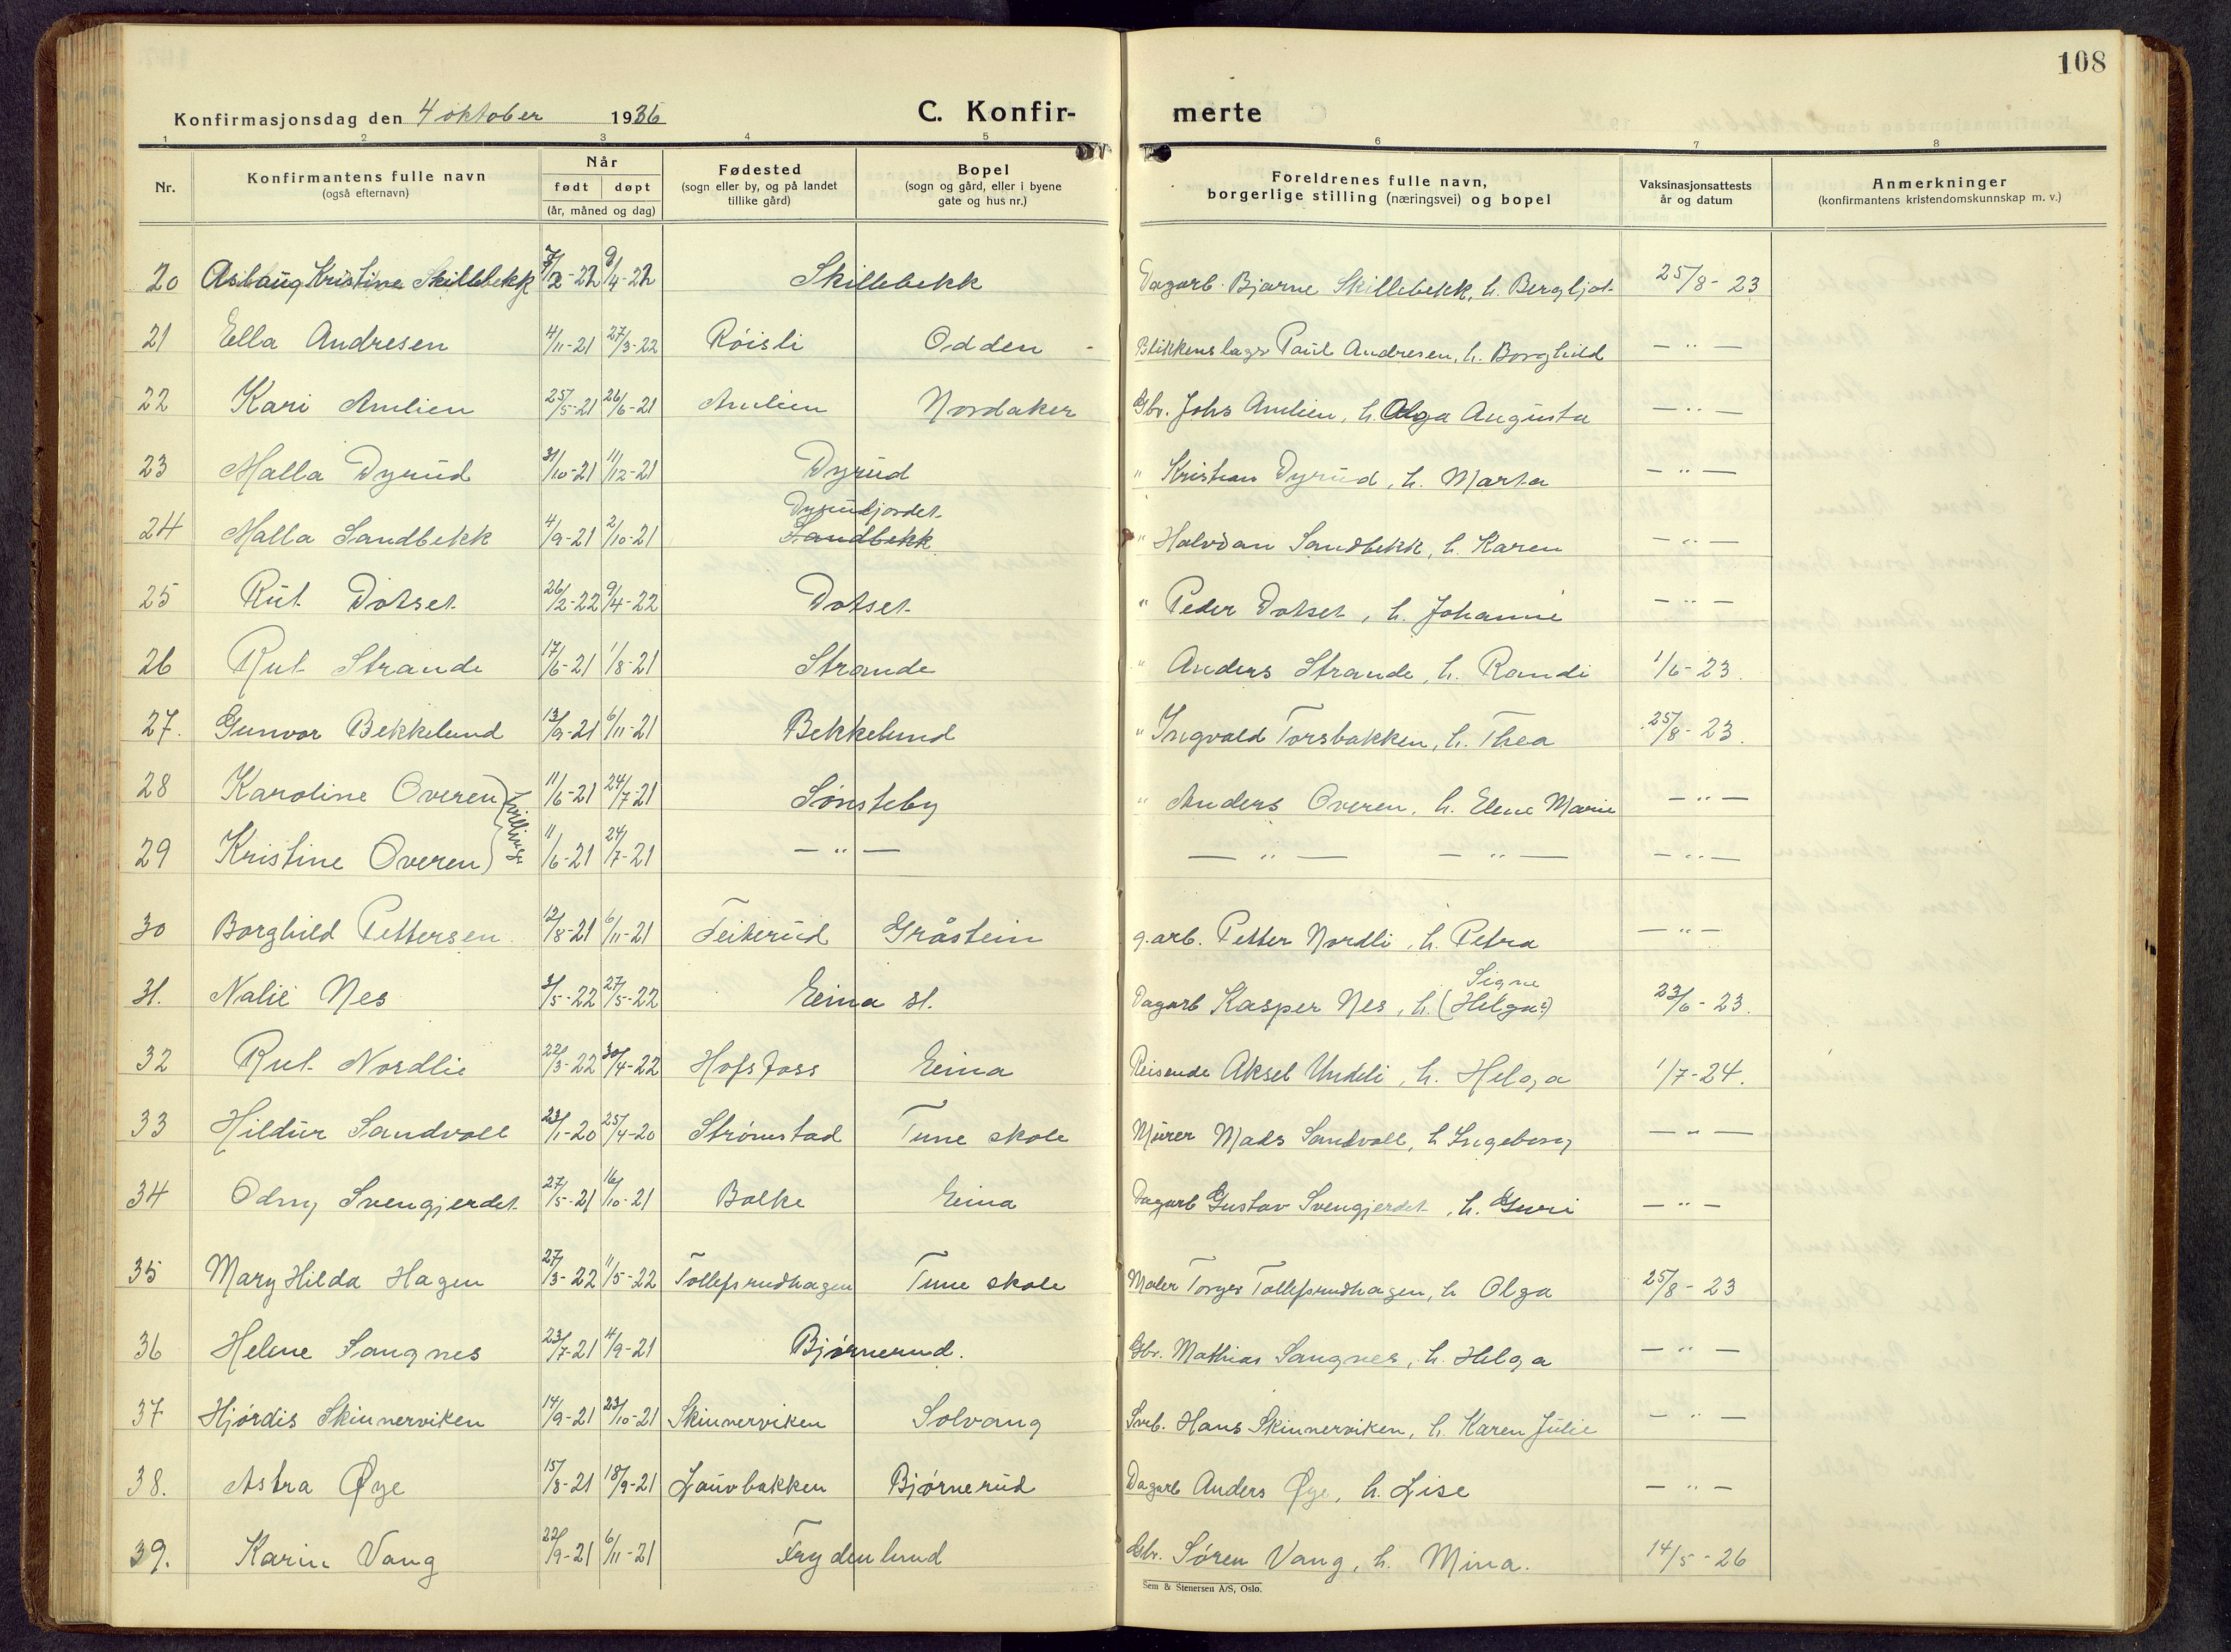 108
Konfirmasjonsdag den 4 oktober 1936 C. Konfir- merte
1 2 3 4 5 6 7 8
Nr.
Konfirmantens fulle navn
(også efternavn)
Når
født døpt
(år, måned og dag)
Fødested
(sogn eller by, og på landet
tillike gård)
Bopel
(sogn og gård, eller i byene
gate og hus nr.)
Foreldrenes fulle navn,
borgerlige stilling (næringsvei) og bopel
Vaksinasjonsattests
år og datum
Anmerkninger
(konfirmantens kristendomskunnskap m. v.)
20 Aslaug Kristine Skillebekk 7/2-22 9/4-22 Skillebekk Dagarb. Bjarne Skillebekk, h. Bergljot 25/8-23
21 Ella Andresen 4/11-21 27/3-22 Röisli Odden Blikkenslager Paul Andresen, h. Borghild — " —
22 Kari Amlien 25/5-21 26/6-21 Amlien Nordaker Gbr. Johs Amlien, h. Olga Augusta — " —
23 Malla Dyrud 31/10-21 11/12-21 Dyrud " Kristian Dyrud, h. Marta — " —
Dyrudjordet
24 Malla Sandbekk 4/9-21 2/10-21 Sandbekk " Halvdan Sandbekk, h. Karen — " —
25 Rut Dotset 26/2-22 9/4-22 Dotset " Peder Dotset, h. Johanne — " —
26 Rut Strande 17/6-21 1/8-21 Strande " Anders Strande, h. Randi 1/6-23.
27. Gunvor Bekkelund 13/9-21 6/11-21 Bekkelund " Ingvald Torsbakken, h. Thea 25/8-23.
28 Karoline Overen } tvillinger 11/6-21 24/7-21 Sønsteby " Anders Overen, h. Elene Marie — " —
29 Kristine Overen 11/6-21 24/7-21 — " — — " — — " — — " —
30 Borghild Pettersen 12/8-21 6/11-21 Feiterud Gråstein g.arb. Petter Nordli, h. Petra — " —
Signe
31. Nalie Nes 3/5-22 27/5-22 Eina st. Dagarb Kasper Nes, h. (Helga?) 23/6-23.
32 Rut Nordlie 22/3-22 30/4-22 Hofsfoss Eina Reisende Aksel Undeli, h. Helga 1/7-24.
33 Hildur Sandvoll 23/1-20 25/4-20 Strömstad Tune skole Murer Mads Sandvoll, h Ingeborg — " —
34 Odny Svengjerdet 27/5-21 16/10-21 Bolke Eina Dagarb Gustav Svengjerdet, h. Guri — " —
35 Mary Hilda Hagen 27/3-22 11/5-22 Tollefsrudhagen Tune skole Maler Torger Tollefsrudhagen, h Olga 25/8-23
36 Helene Sangnes 23/7-21 4/9-21 Bjørnerud. Gbr. Mathias Sangnes, h. Helga — " —
37 Hjördis Skinnerviken 14/9-21 23/10-21 Skinnerviken Solvang Hans Skinnerviken, h. Karen Julie — " —
38. Astra Øye 15/8-21 18/9-21 Lauvbakken Bjørnerud Dagarb Anders Øye, h. Lise — " —
39. Karin Vang 22/9-21 6/11-21 Frydenlund Gbr. Søren Vang, h. Mina. 14/5-26
Sem & Stenersen A/S, Oslo.